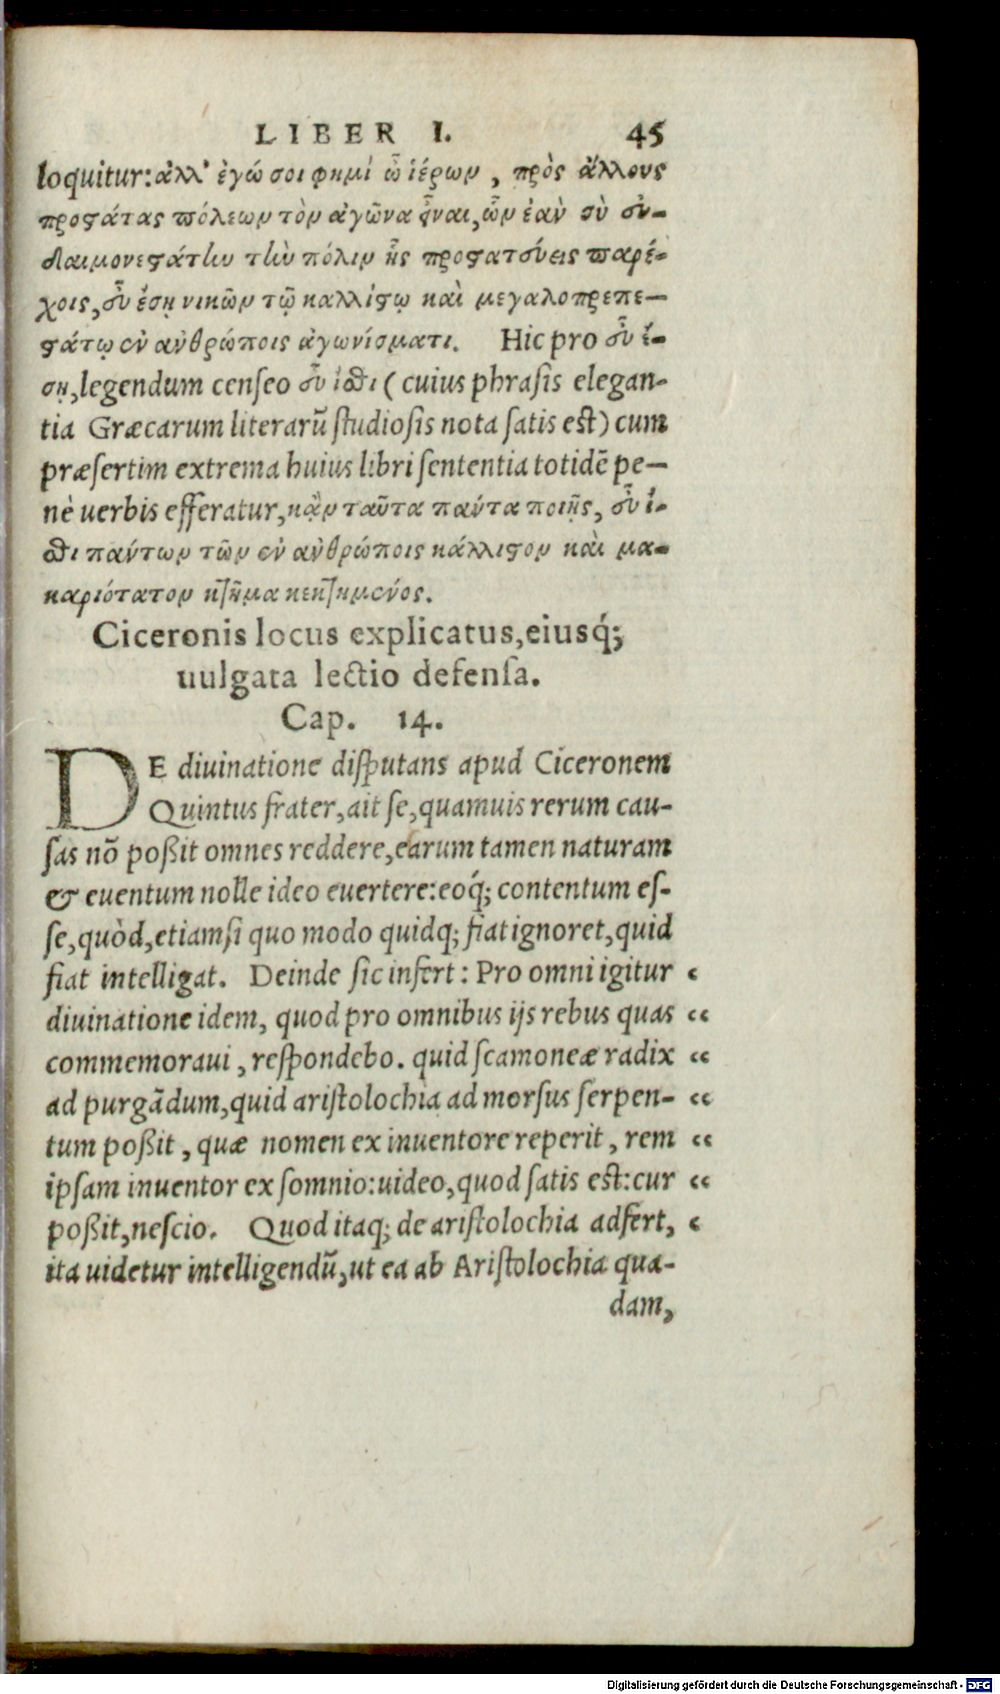 LIBER I. 45
loquitur: ἀλλ' ἐγώ σοι φημὶ ὦ ἱέρων, πρὸς ἄλλους
προστάτας πόλεων τὸν ἀγῶνα εἶναι, ὧν ἐὰν σὺ εὐ-
δαιμονεστάτην τὴν πόλιν ἧς προστατεύεις παρέ-
χοις, εὖ ἔσῃ νικῶν τῷ καλλίστῳ καὶ μεγαλοπρεπε-
στάτῳ ἐν ἀνθρώποις ἀγωνίσματι. Hic pro εὖ ἔ-
σῃ, legendum censeo εὖ ἴσθι (cuius phrasis elegan-
tia Græcarum literarũ studiosis nota satis est) cum
præsertim extrema huius libri sententia totidẽ pe-
nè uerbis efferatur, κἂν ταῦτα πάντα ποιῇς, εὖ ἴ-
σθι πάντων τῶν ἐν ἀνθρώποις κάλλιστον καὶ μα-
καριότατον κτῆμα κεκτημένος.
Ciceronis locus explicatus, eiusq́;
uulgata lectio defensa.
Cap. 14.
DE diuinatione disputans apud Ciceronem
Quintus frater, ait se, quamuis rerum cau-
sas nõ poßit omnes reddere, earum tamen naturam
& euentum nolle ideo euertere: eoq́; contentum es-
se, quòd, etiamsi quo modo quidq; fiat ignoret, quid
fiat intelligat. Deinde sic infert: Pro omni igitur ‹
diuinatione idem, quod pro omnibus ijs rebus quas “
commemoraui, respondebo. quid scamoneæ radix “
ad purgãdum, quid aristolochia ad morsus serpen- “
tum poßit, quæ nomen ex inuentore reperit, rem “
ipsam inuentor ex somnio: uideo, quod satis est: cur “
poßit, nescio. Quod itaq; de aristolochia adfert, ‹
ita uidetur intelligendũ, ut ea ab Aristolochia qua-
dam,
Digitalisierung gefördert durch die Deutsche Forschungsgemeinschaft - DFG